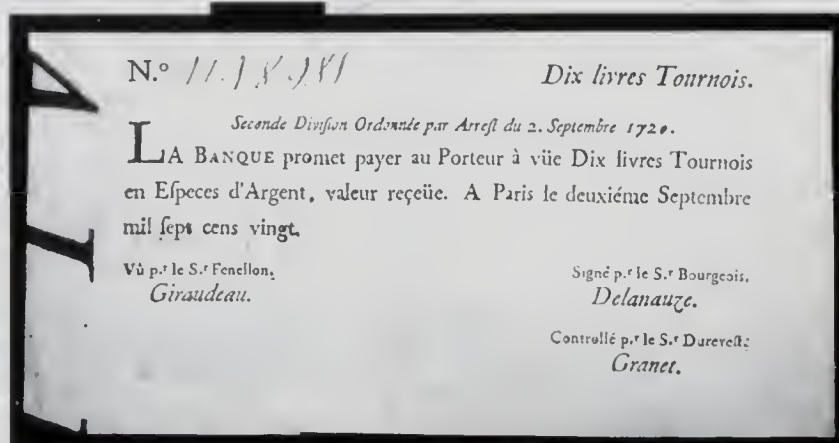 N.º Dix livres Tournois.
Seconde Diviſion Ordonnée par Arreſt du 2. Septembre 1720.
LA BANQUE promet payer au Porteur à vüe Dix livres Tournois
en Eſpeces d'Argent, valeur reçeüe. A Paris le deuxiéme Septembre
mil ſept cens vingt.
Vû p.r le S.r Fenellon, Signé p.r le S.r Bourgeois,
Giraudeau. Delanauze.
Controllé p.r le S.r Dureveſt:
Granet.